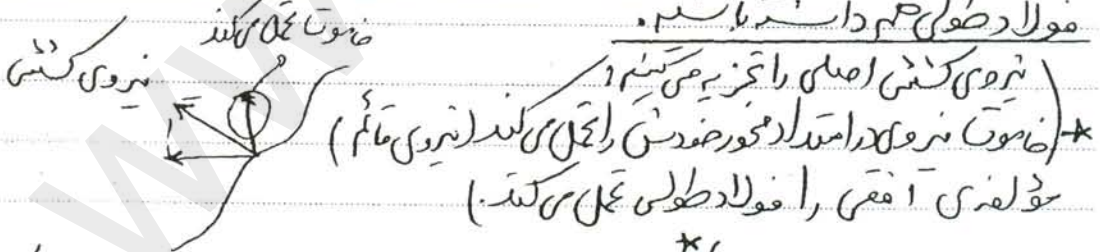 فولاد طولی هم داشته باشیم.
خاموت تحمل می‌کند
نیروی کششی
(نیروی کششی اصلی را تجزیه می‌کنیم:
* خاموت نیروی در امتداد محور خودش را تحمل می‌کند (نیروی قائم)
مؤلفه‌ی افقی را فولاد طولی تحمل می‌کند.)
*